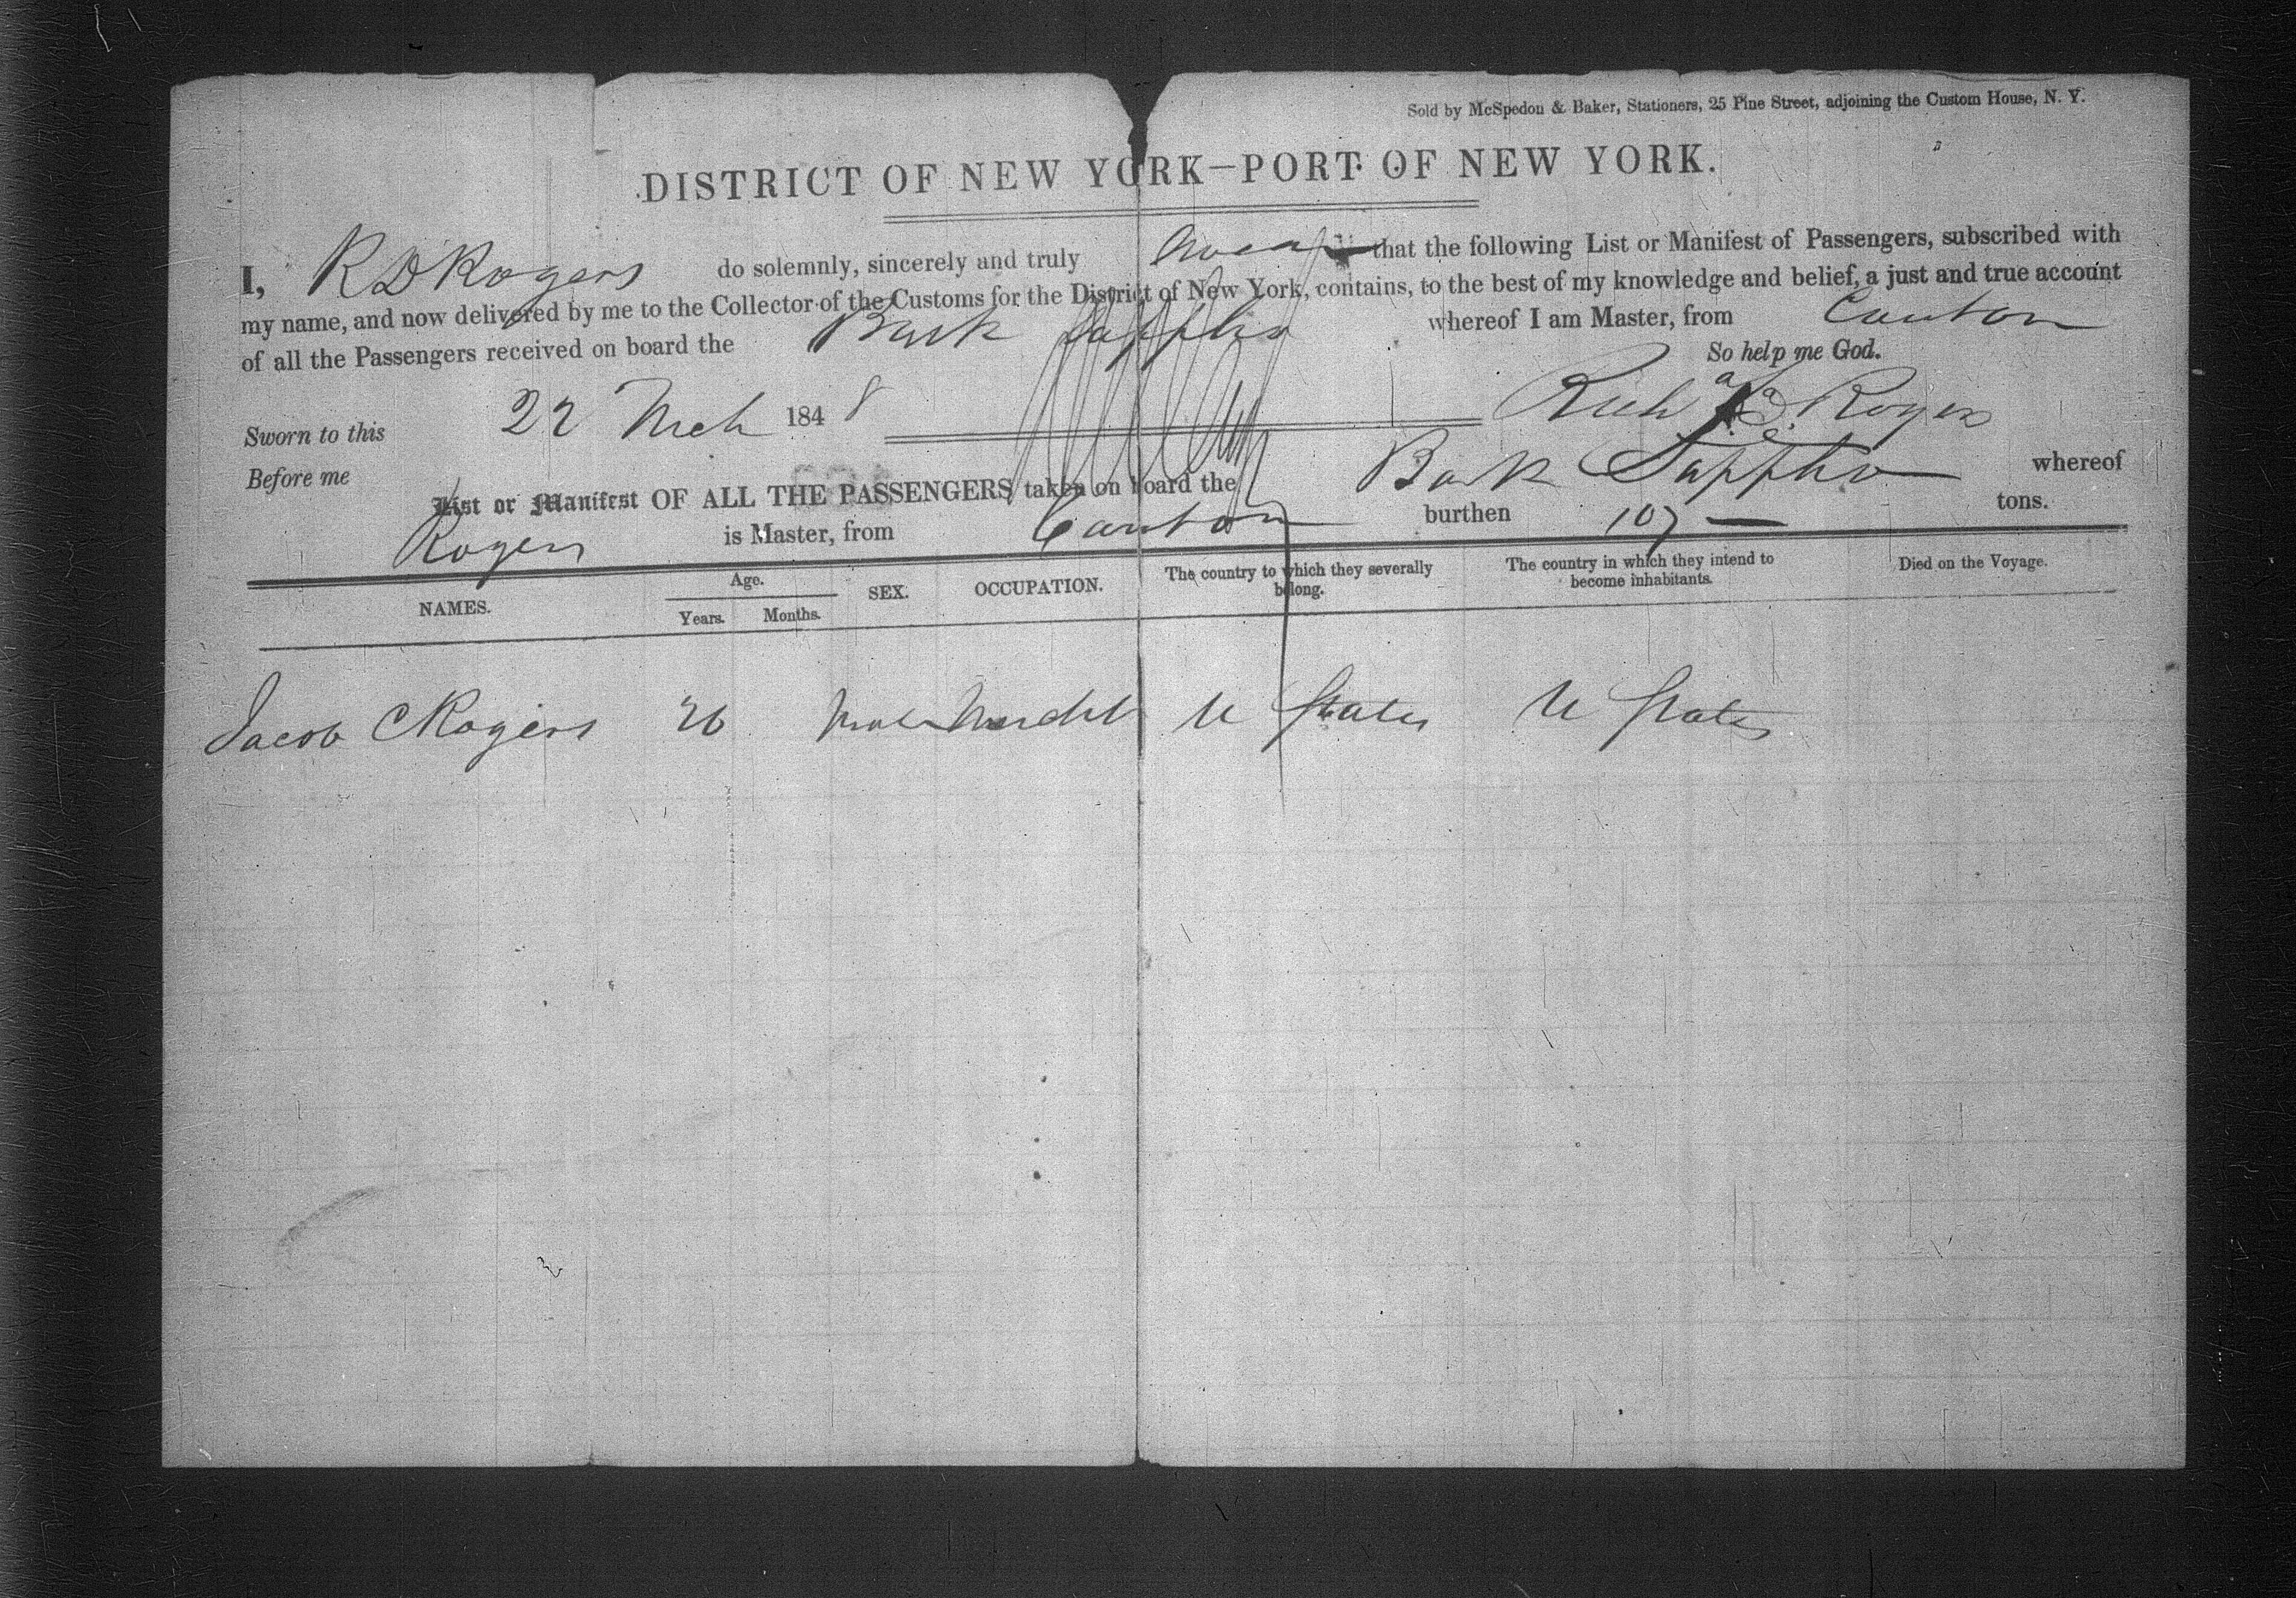 Sold by McSpedon & Baker, Stationers, 25 Pine Street, adjoining the Custom House, N. Y.
DISTRICT OF NEW YORK—PORT OF NEW YORK.
I, R D Rogers do solemnly, sincerely and truly swear that the following List or Manifest of Passengers, subscribed with
my name, and now delivered by me to the Collector of the Customs for the District of New York, contains, to the best of my knowledge and belief, a just and true account
of all the Passengers received on board the Bark Sappho whereof I am Master, from Canton
So help me God.
Sworn to this 22 Mch 1848 Richd D Rogers
Before me
List or Manifest OF ALL THE PASSENGERS taken on board the Bark Sappho whereof
Rogers is Master, from Canton burthen tons.
NAMES. Age. Years. Months. SEX. OCCUPATION. The country to which they severally belong. The country in which they intend to become inhabitants. Died on the Voyage.
Jacob C Rogers 20 Male Mercht U States U States